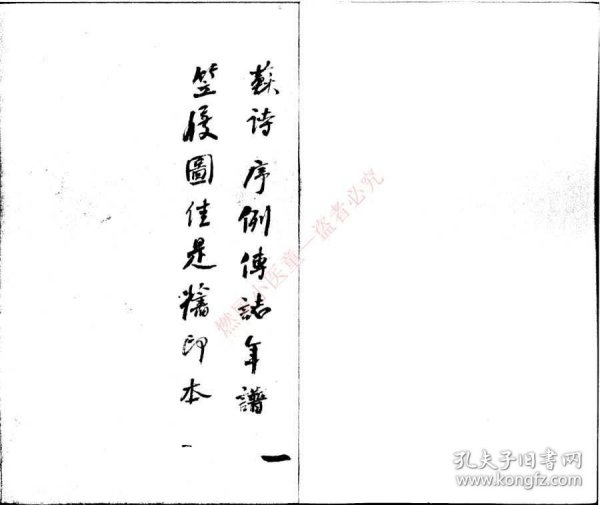 蘇詩序例傳誌年譜 一
笠屐圖佳是印本 一
小医童一盗者必究
孔夫子旧书网
www.kongfz.com